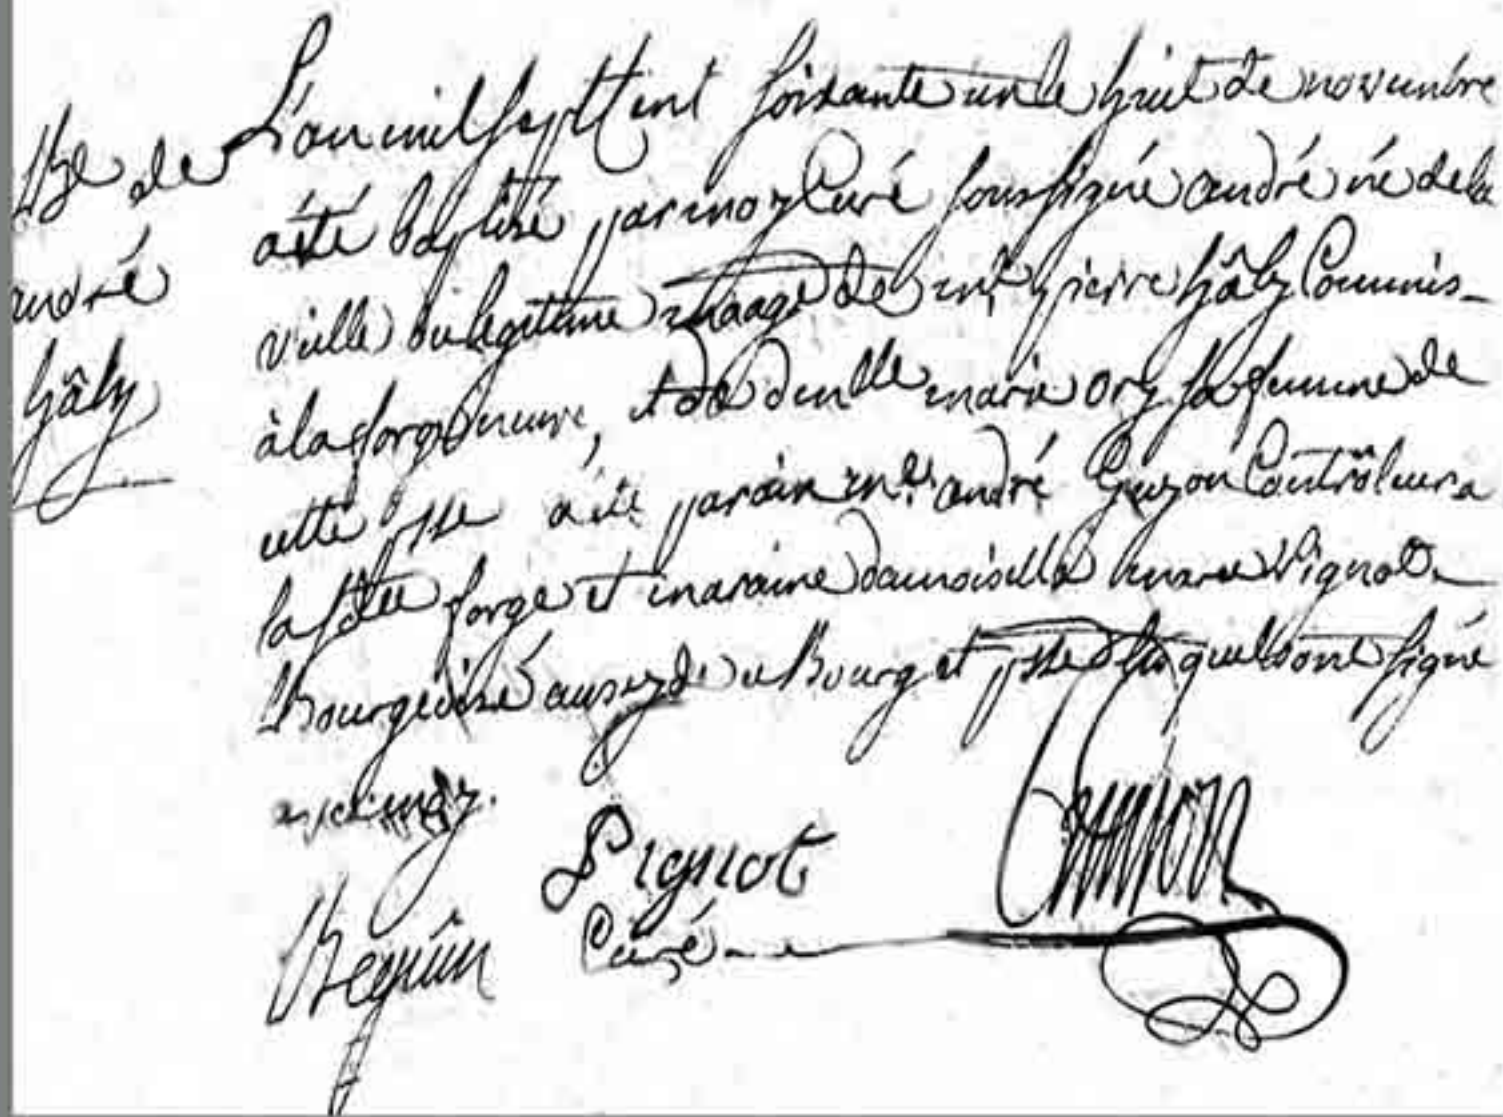 Bे de
andré
hâly
L'an mil sept Cent soixante un le huit de novembre
a été baptisé par moy Curé soussigné andré né de la
veille du legitime mariage de mr pierre hâly Commis-
à la forge neuve, et de dmlle marie ory sa femme de
cette psse a été parain mr andré Guyon Contrôleur a
la ditte forge et maraine damoiselle marie Pignot
Bourgeoise de ce Bourg et psse lesquels ont signé
avec moy.
Pignot
Bequin Curé